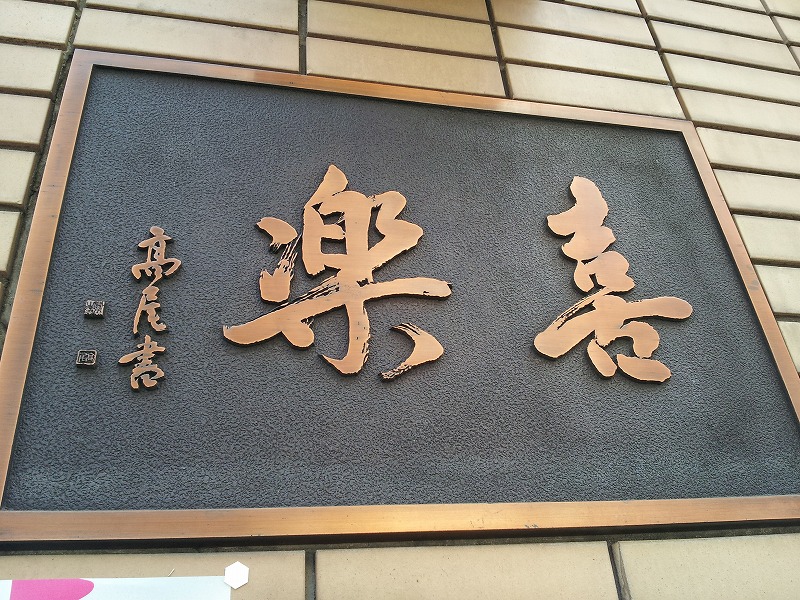 喜楽
高尾書